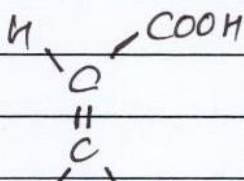 H COOH
C
||
C